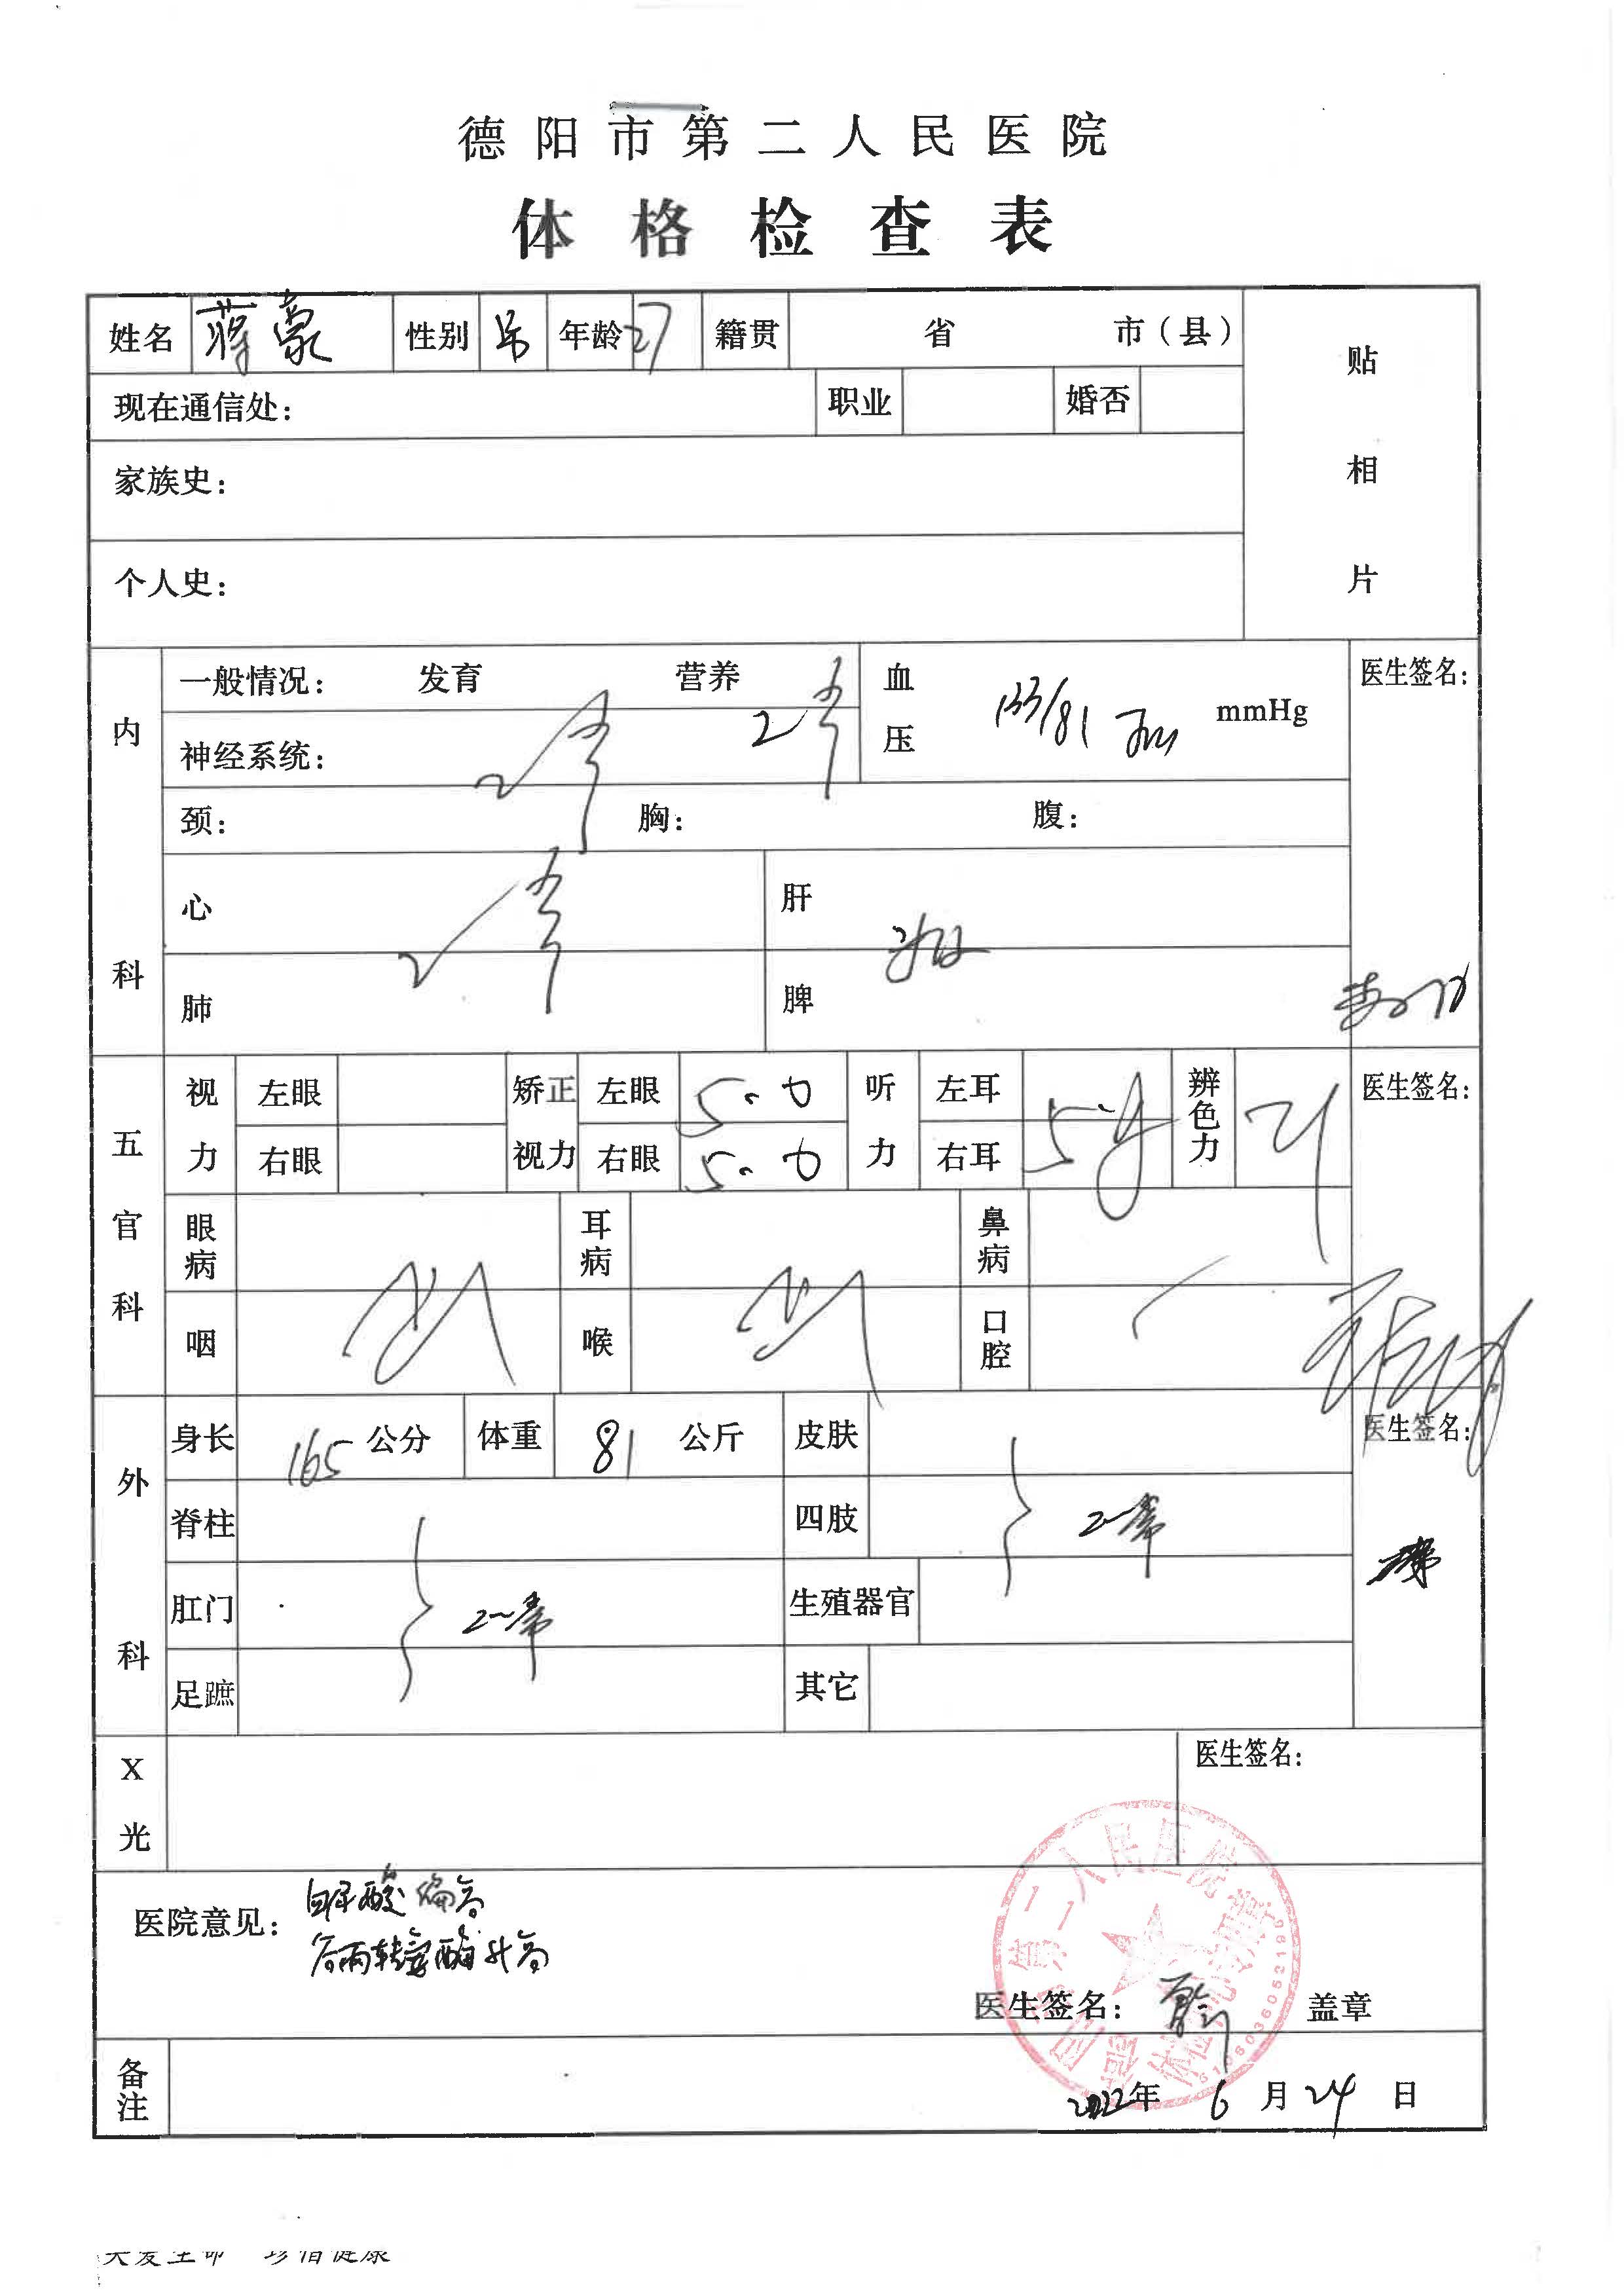 德阳市第二人民医院
体格检查表
姓名 蒋豪 性别 男 年龄 27 籍贯 省 市（县）
贴相片
现在通信处： 职业 婚否
家族史：
个人史：
内科
一般情况： 发育 营养
血压 133/81 mmHg
医生签名：
神经系统：
颈： 胸： 腹：
心 肝
肺 脾
五官科
视力 左眼 矫正视力 左眼 5.0 听力 左耳 辨色力
医生签名：
右眼 右眼 5.0 右耳
眼病 耳病 鼻病
咽 喉 口腔
外科
身长 165 公分 体重 81 公斤 皮肤
医生签名：
脊柱 四肢
肛门 生殖器官
足蹠 其它
X光
医生签名：
医院意见： 血尿酸偏高
谷丙转氨酶升高
医生签名： 盖章
备注
2022年 6 月 24 日
关爱生命 珍惜健康